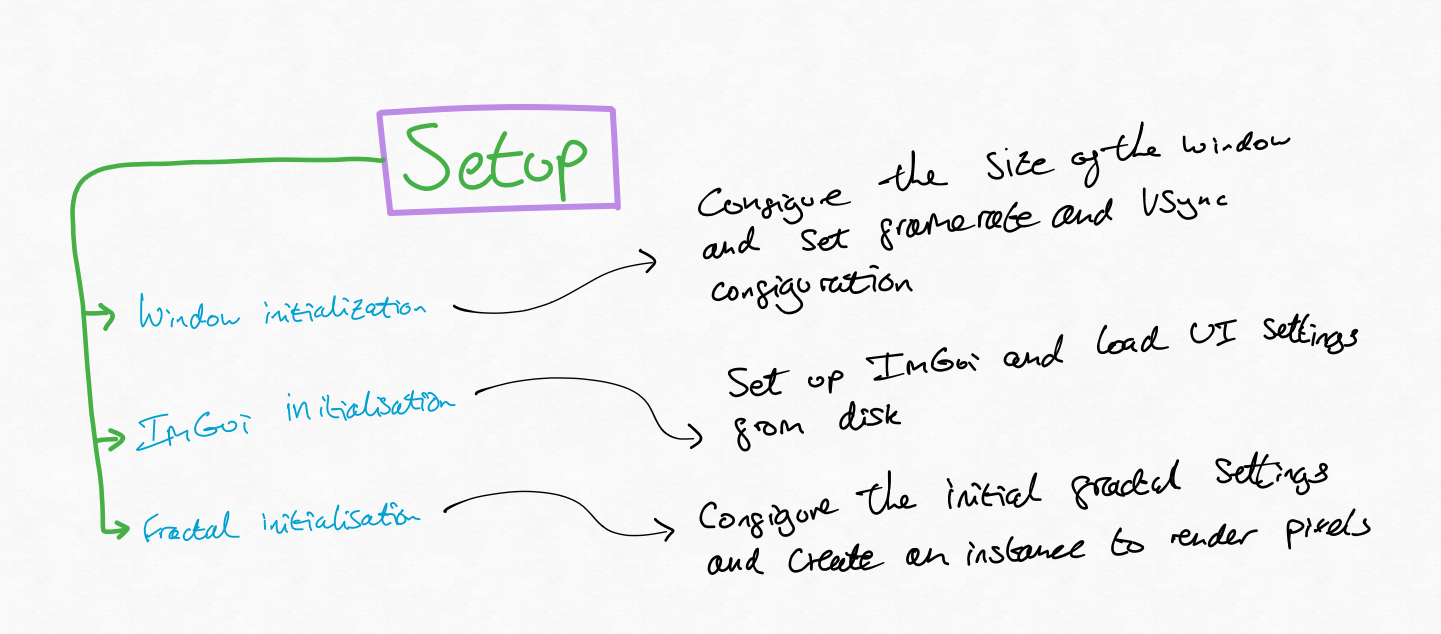 Setup
Window initialization
Configure the size of the window
and set framerate and VSync
configuration
ImGui initialisation
Set up ImGui and load UI settings
from disk
Fractal initialisation
Configure the initial fractal settings
and create an instance to render pixels